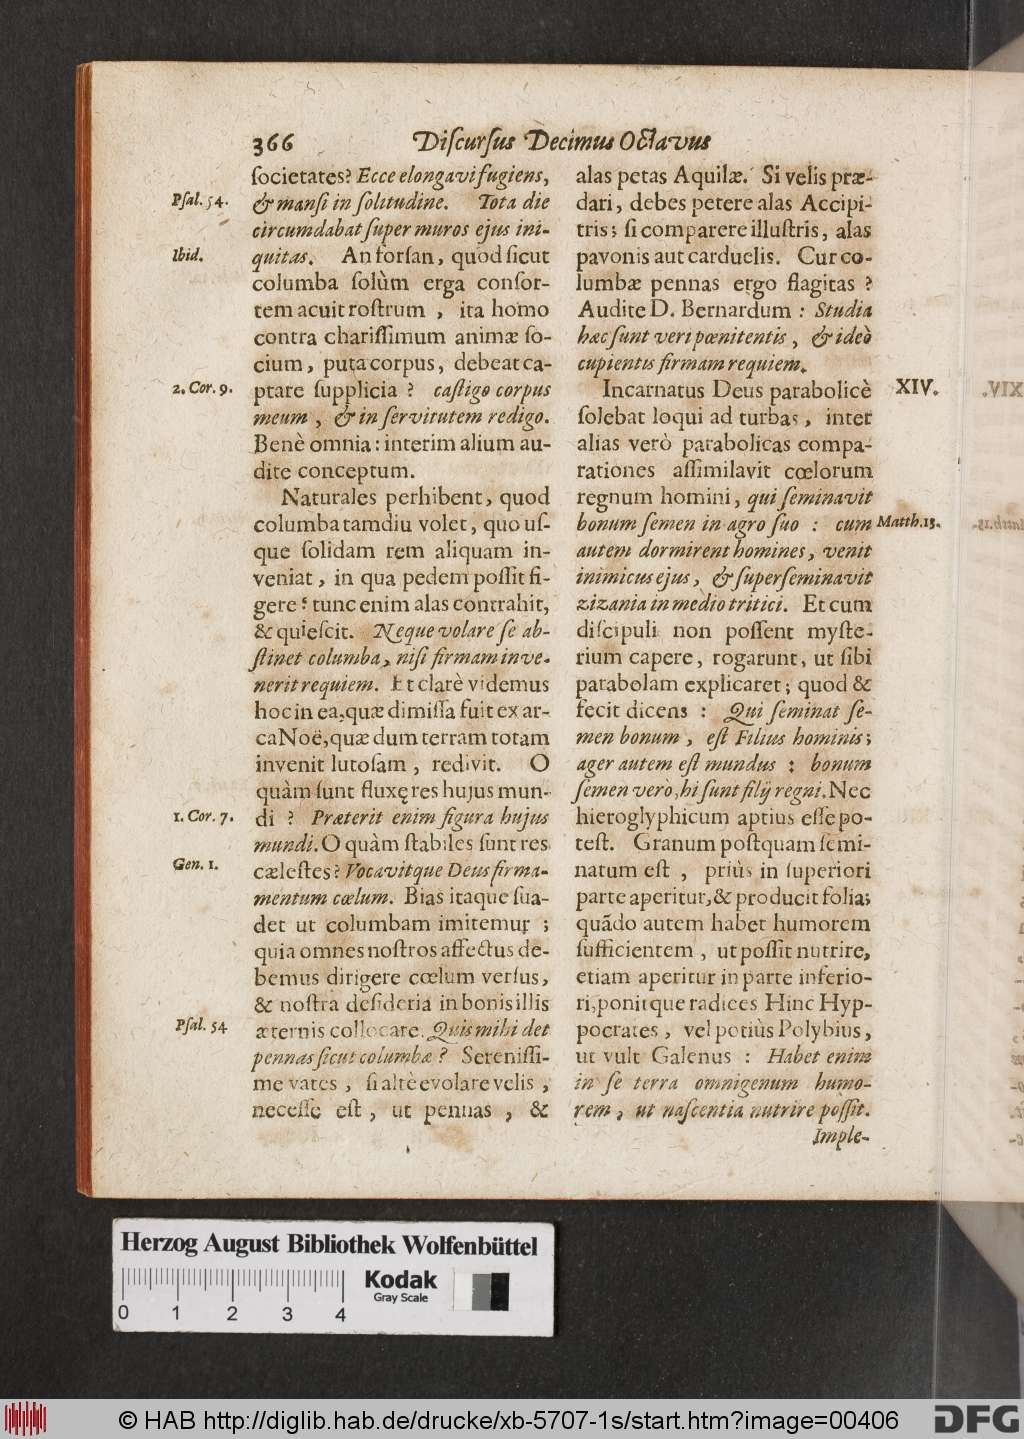 366 Diſcurſus Decimus Octavus
ſocietates? Ecce elongavi fugiens,
Pſal. 54. & manſi in ſolitudine. Tota die
circumdabat ſuper muros ejus ini-
Ibid. quitas. An forſan, quod ſicut
columba ſolùm erga conſor-
tem acuit roſtrum, ita homo
contra chariſſimum animæ ſo-
cium, puta corpus, debeat ca-
2. Cor. 9. ptare ſupplicia? caſtigo corpus
meum, & in ſervitutem redigo.
Benè omnia: interim alium au-
dite conceptum.
Naturales perhibent, quod
columba tamdiu volet, quo uſ-
que ſolidam rem aliquam in-
veniat, in qua pedem poſſit fi-
gere: tunc enim alas contrahit,
& quieſcit. Neque volare ſe ab-
ſtinet columba, niſi firmam inve-
nerit requiem. Et clarè videmus
hoc in ea, quæ dimiſſa fuit ex ar-
ca Noë, quæ dum terram totam
invenit lutoſam, redivit. O
quàm ſunt fluxę res hujus mun-
1. Cor. 7. di? Præterit enim figura hujus
mundi. O quàm ſtabiles ſunt res
Gen. 1. cæleſtes? Vocavitque Deus firma-
mentum cœlum. Bias itaque ſua-
det ut columbam imitemur;
quia omnes noſtros affectus de-
bemus dirigere cœlum verſus,
& noſtra deſideria in bonis illis
Pſal. 54 æternis collocare. Quis mihi det
pennas ſicut columbæ? Sereniſſi-
me vates, ſi altè evolare velis,
neceſſe eſt, ut pennas, &
alas petas Aquilæ. Si velis præ-
dari, debes petere alas Accipi-
tris; ſi comparere illuſtris, alas
pavonis aut carduelis. Cur co-
lumbæ pennas ergo flagitas?
Audite D. Bernardum: Studia
hæc ſunt veri pœnitentis, & ideò
cupientis firmam requiem.
Incarnatus Deus parabolicè XIV.
ſolebat loqui ad turbas, inter
alias verò parabolicas compa-
rationes aſſimilavit cœlorum
regnum homini, qui ſeminavit
bonum ſemen in agro ſuo: cum Matth. 13.
autem dormirent homines, venit
inimicus ejus, & ſuperſeminavit
zizania in medio tritici. Et cum
diſcipuli non poſſent myſte-
rium capere, rogarunt, ut ſibi
parabolam explicaret; quod &
fecit dicens: Qui ſeminat ſe-
men bonum, eſt Filius hominis;
ager autem eſt mundus: bonum
ſemen verò, hi ſunt filij regni. Nec
hieroglyphicum aptius eſſe po-
teſt. Granum poſtquam ſemi-
natum eſt, priùs in ſuperiori
parte aperitur, & producit folia;
quãdo autem habet humorem
ſufficientem, ut poſſit nutrire,
etiam aperitur in parte inferio-
ri, ponitque radices Hinc Hyp-
pocrates, vel potiùs Polybius,
ut vult Galenus: Habet enim
in ſe terra omnigenum humo-
rem, ut naſcentia nutrire poſſit.
Imple-
Herzog August Bibliothek Wolfenbüttel
Kodak
Gray Scale
0 1 2 3 4
© HAB http://diglib.hab.de/drucke/xb-5707-1s/start.htm?image=00406
DFG